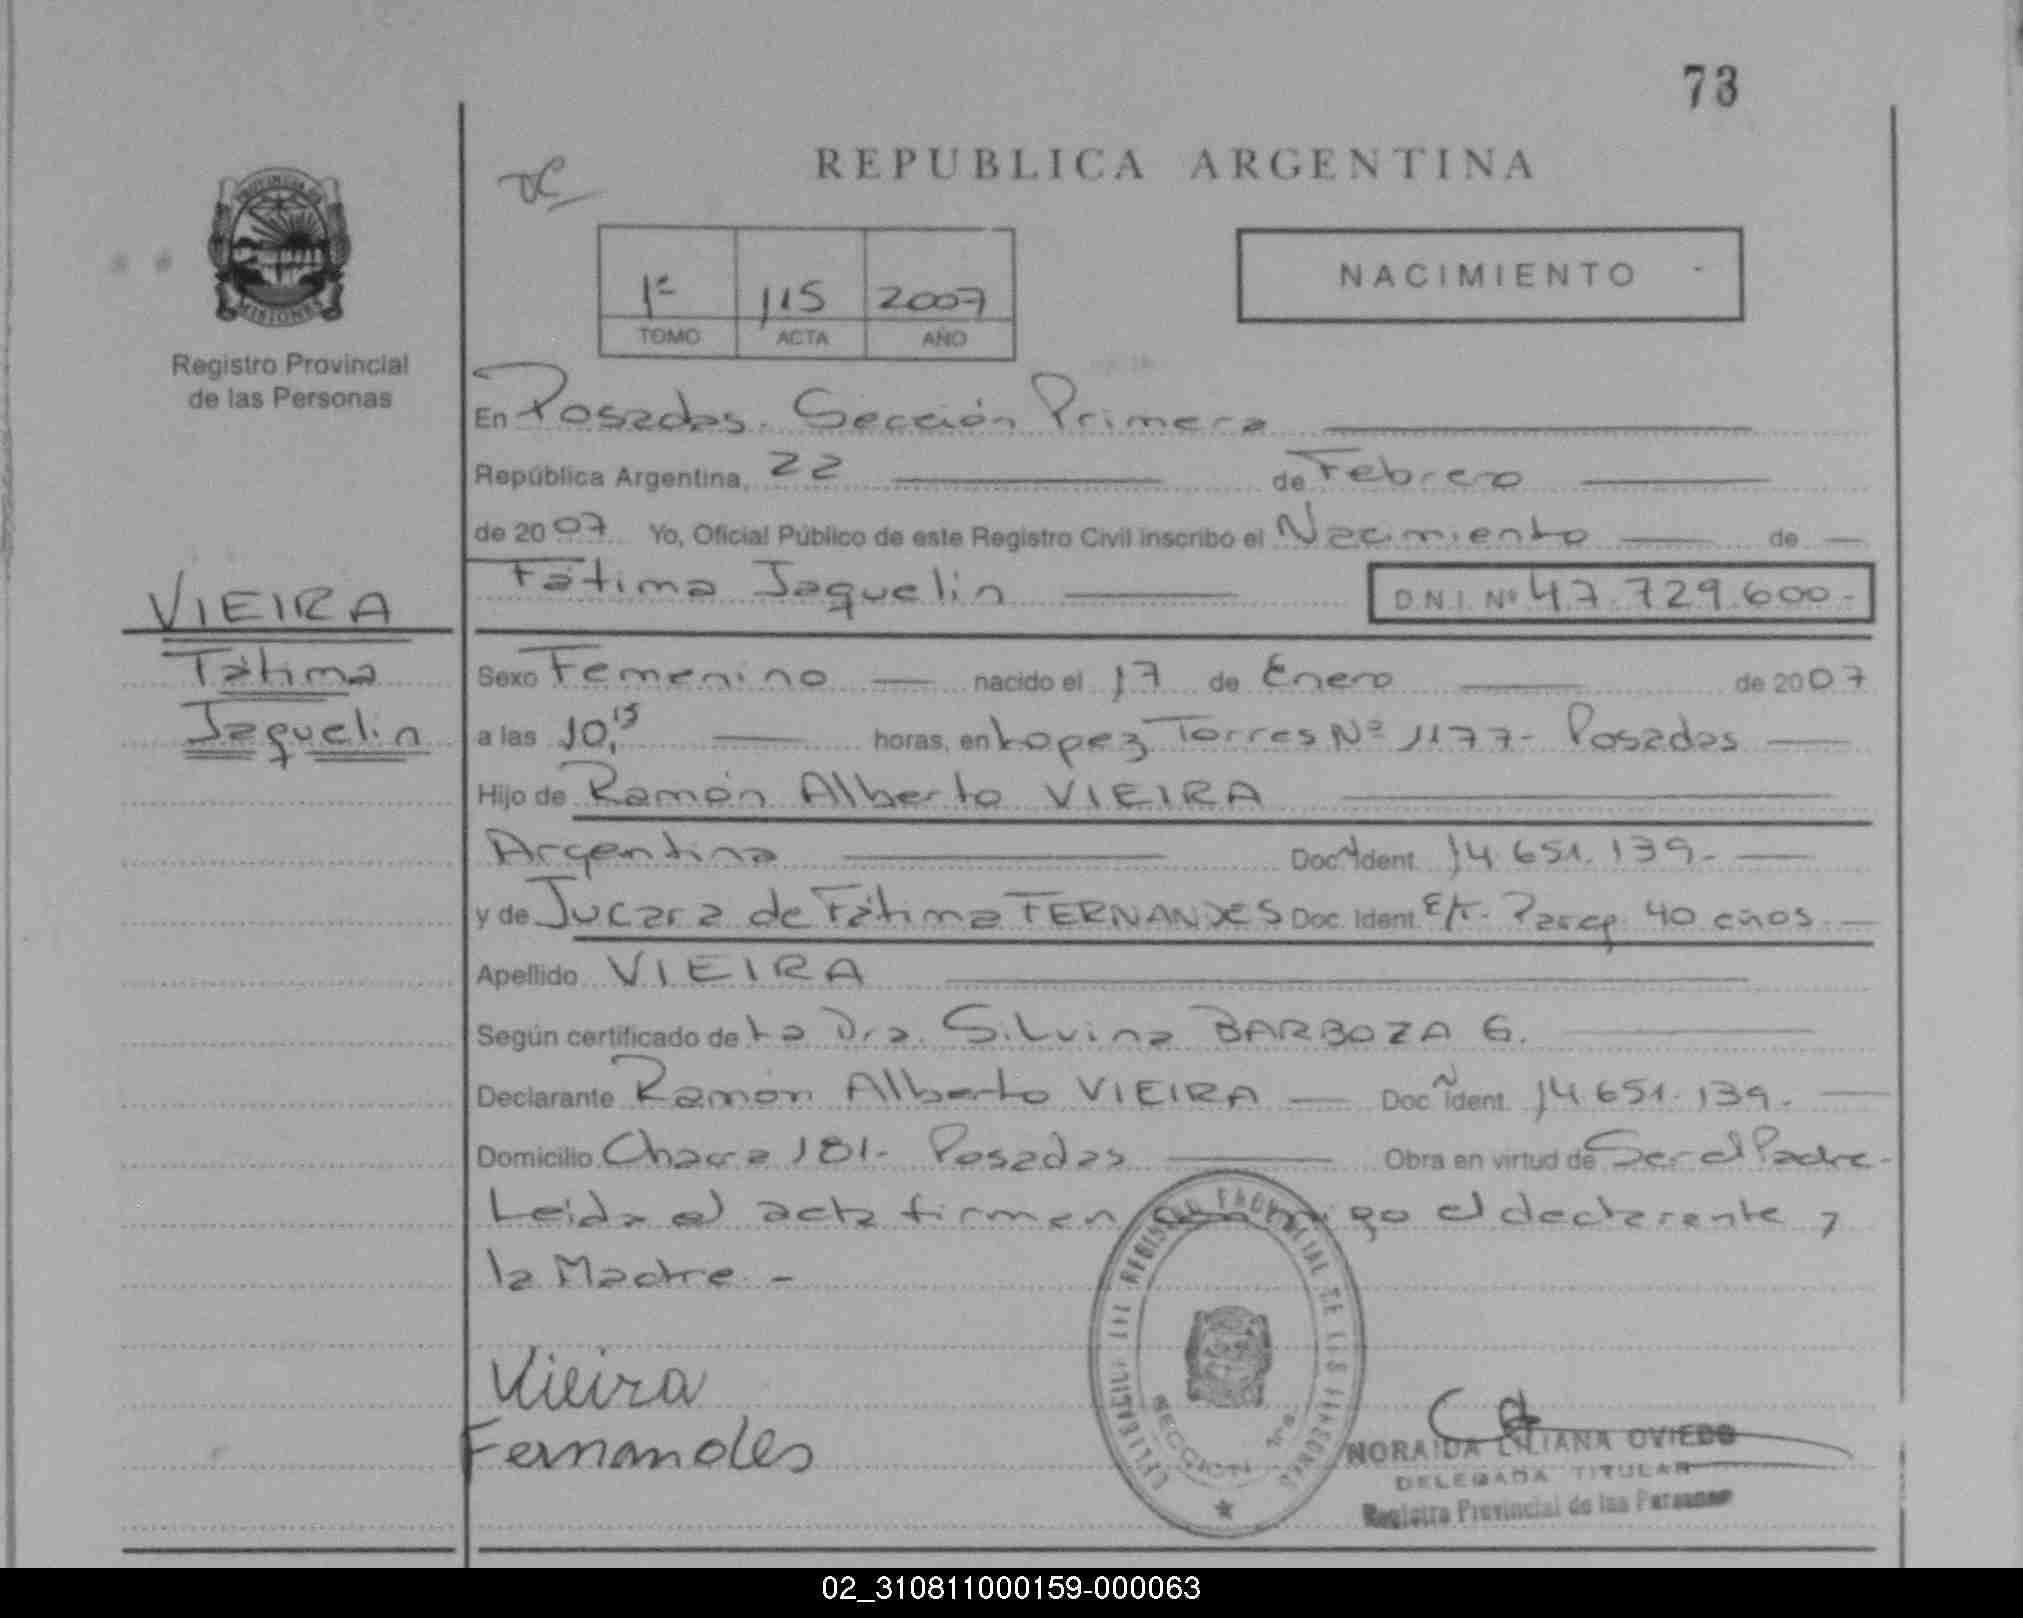 73
REPUBLICA ARGENTINA
PROVINCIA DE
MISIONES
Registro Provincial
de las Personas
1º 115 2007
TOMO ACTA AÑO
NACIMIENTO
En Posadas. Sección Primera
República Argentina, 22 de Febrero
de 2007 Yo, Oficial Público de este Registro Civil inscribo el Nacimiento de
Fátima Jaquelin D.N.I. Nº 47.729.600.-
VIEIRA
Fátima
Jaquelin
Sexo Femenino nacido el 17 de Enero de 2007
a las 10,15 horas, en Lopez Torres Nº 1177- Posadas
Hijo de Ramón Alberto VIEIRA
Argentina Doc. Ident. 14.651.139.-
y de Jucara de Fátima FERNANDES Doc. Ident. 40 años.
Apellido VIEIRA
Según certificado de La Dra. Silvina BARBOZA G.
Declarante Ramón Alberto VIEIRA Doc. Ident. 14.651.139.
Domicilio Chacra 181- Posadas Obra en virtud de Ser el Padre-
Leida el acta firman conmigo el declarante y
la Madre.-
Vieira
Fernandes
REGISTRO PROVINCIAL DE LAS PERSONAS
SECCION 1ra.
NORAIDA LILIANA OVIEDO
DELEGADA TITULAR
Registro Provincial de las Personas
02_310811000159-000063